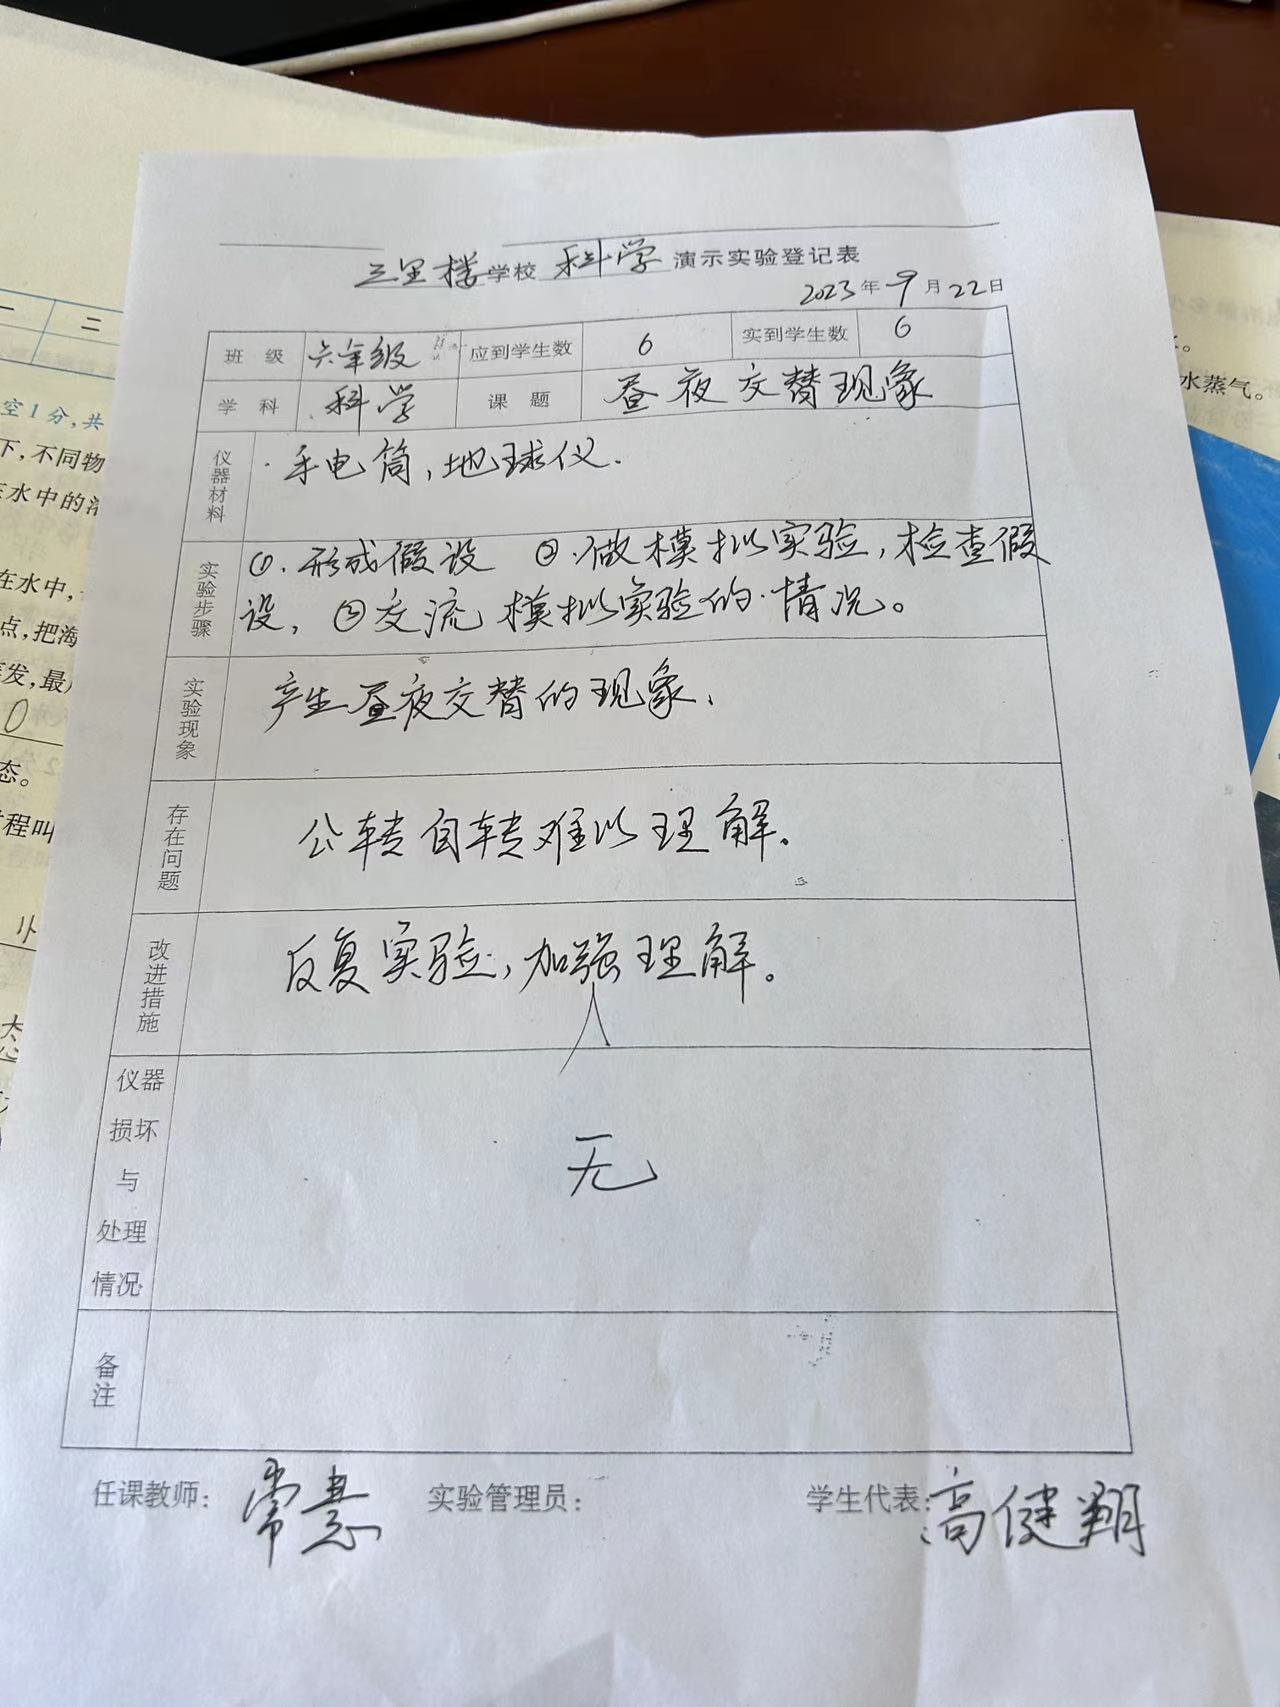 三里楼学校 科学 演示实验登记表
2023年9月22日
班 级 六年级 应到学生数 6 实到学生数 6
学 科 科学 课 题 昼夜交替现象
仪器材料 手电筒,地球仪.
实验步骤 ①.形成假设 ②.做模拟实验,检查假
设, ③交流模拟实验的情况。
实验现象 产生昼夜交替的现象.
存在问题 公转自转难以理解。
改进措施 反复实验,加强理解。
仪器
损坏
与
处理
情况
无
备注
任课教师: 常慧 实验管理员: 学生代表: 高健翔
一 二
空1分,共
下,不同物
在水中,
点,把海
发,最
0
态。
程叫
水蒸气。